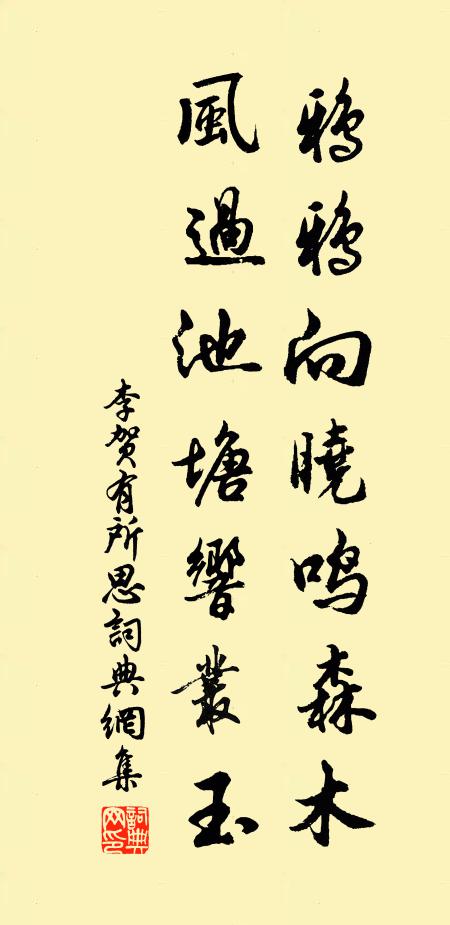 鴉鴉向曉鳴森木
風過池塘響叢玉
李賀有所思詞典網集
詞典網印